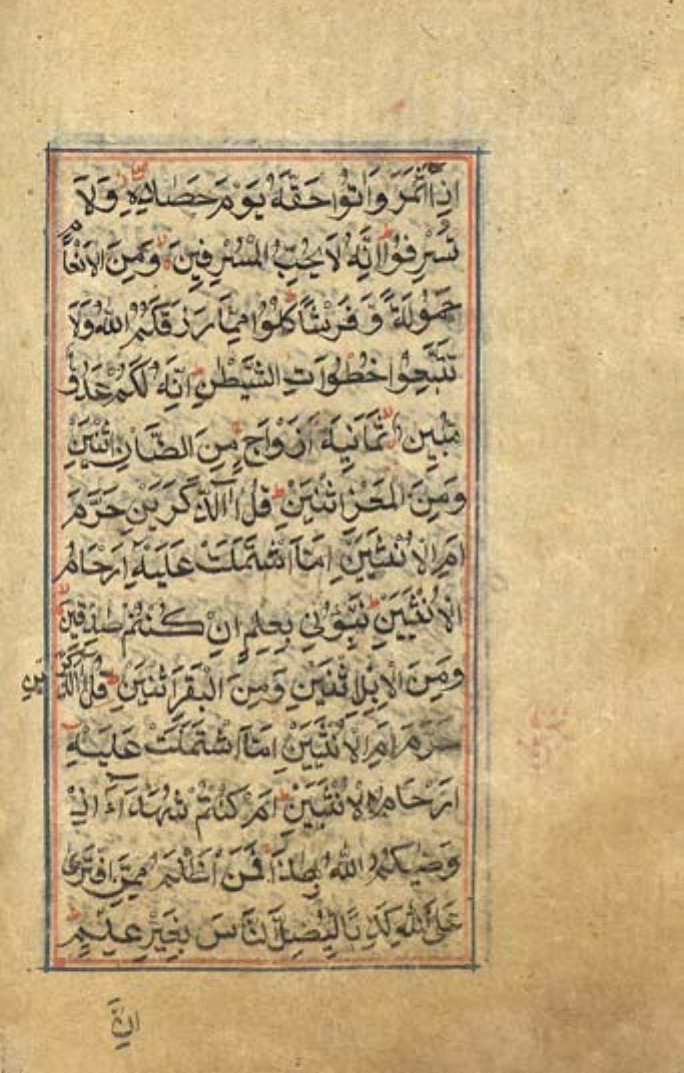 اِذَا اَثْمَرَ وَاٰتُوا حَقَّهُ يَوْمَ حَصَادِهٖ وَلَا
تُسْرِفُوْا اِنَّهُ لَا يُحِبُّ الْمُسْرِفِيْنَ وَمِنَ الْاَنْعَامِ
حَمُوْلَةً وَّفَرْشًا كُلُوْا مِمَّا رَزَقَكُمُ اللّٰهُ وَلَا
تَتَّبِعُوْا خُطُوَاتِ الشَّيْطٰنِ اِنَّهُ لَكُمْ عَدُوٌّ
مُّبِيْنٌ ثَمَانِيَةَ اَزْوَاجٍ مِنَ الضَّاْنِ اثْنَيْنِ
وَمِنَ الْمَعْزِ اثْنَيْنِ قُلْ آٰلذَّكَرَيْنِ حَرَّمَ
اَمِ الْاُنْثَيَيْنِ اَمَّا اشْتَمَلَتْ عَلَيْهِ اَرْحَامُ
الْاُنْثَيَيْنِ نَبِّؤُنِيْ بِعِلْمٍ اِنْ كُنْتُمْ صٰدِقِيْنَ
وَمِنَ الْاِبِلِ اثْنَيْنِ وَمِنَ الْبَقَرِ اثْنَيْنِ قُلْ آٰلذَّكَرَيْنِ
حَرَّمَ اَمِ الْاُنْثَيَيْنِ اَمَّا اشْتَمَلَتْ عَلَيْهِ
اَرْحَامُ الْاُنْثَيَيْنِ اَمْ كُنْتُمْ شُهَدَآءَ اِذْ
وَصّٰيكُمُ اللّٰهُ بِهٰذَا فَمَنْ اَظْلَمُ مِمَّنِ افْتَرٰى
عَلَى اللّٰهِ كَذِبًا لِيُضِلَّ النَّاسَ بِغَيْرِ عِلْمٍ
اِنَّ